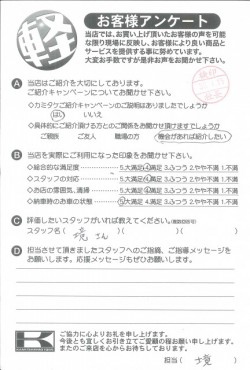 軽
お客様アンケート
当店では、お買い上げ頂いたお客様の声を可能
な限り現場に反映し、お客様により良い商品と
サービスを提供する事に努めています。
大変お手数ですが是非お声をお聞かせ下さい。
A 当店はご紹介を大切にしております。
ご紹介キャンペーンについてお聞かせ下さい。
◇カミタケご紹介キャンペーンのご説明はありましたでしょうか
はい いいえ
◇具体的にご紹介頂ける方とのご関係をお聞かせ頂けますでしょうか
ご親族 ご友人 職場の方 機会があれば紹介したい
B 当店を実際にご利用になった印象をお聞かせ下さい。
◇総合的な満足度 5.大満足 4.満足 3.ふつう 2.やや不満 1.不満
◇スタッフの対応 5.大満足 4.満足 3.ふつう 2.やや不満 1.不満
◇お店の雰囲気、清掃 5.大満足 4.満足 3.ふつう 2.やや不満 1.不満
◇納車時のお車の状態 5.大満足 4.満足 3.ふつう 2.やや不満 1.不満
C 評価したいスタッフがいれば教えてください。(複数回答可)
スタッフ名( 境さん )( )
D 担当させて頂きましたスタッフへのご指摘、ご指導メッセージを
お願いします。応援メッセージもぜひお願いします。
K
ご協力に心よりお礼を申し上げます。
今後とも宜しくお引き立てご愛顧の程お願い申し上げます。
またのご来店を心からお待ちしております。
担当( 境 )